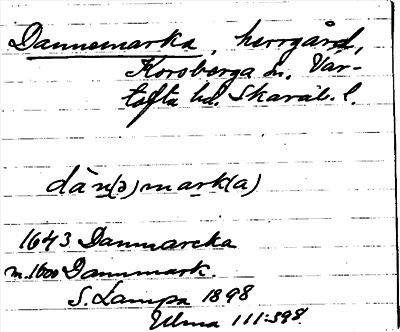 Dannemarka, herrgård,
Korsberga sn. Var-
tofta hd. Skarab. l.
dàn(ə)mark(a)
1643 Danmarcka
m. 1600 Dannmark.
S. Lampa 1898
Ulma 111:598.